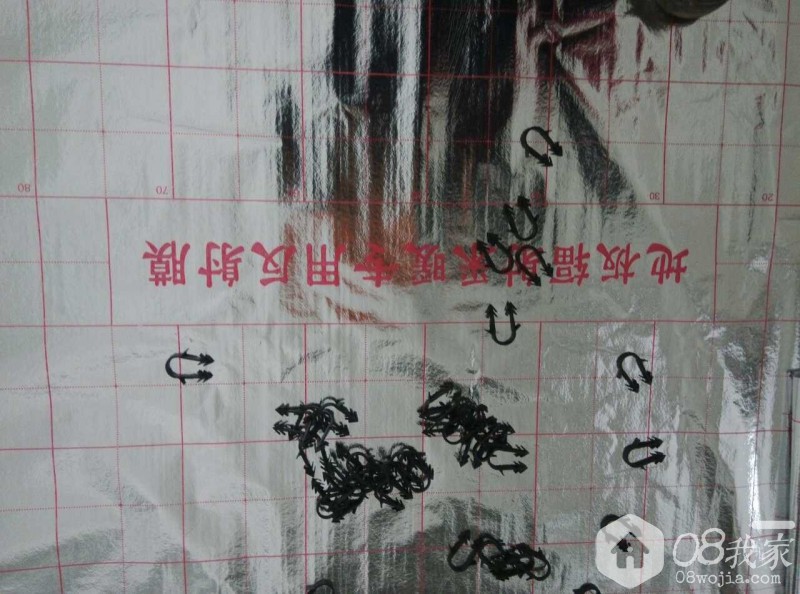 80
70
30
20
地板辐射采暖专用反射膜
08我家
08wojia.com